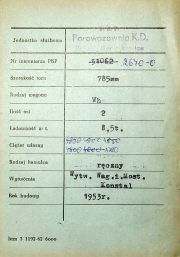 Jednostka służbowa Parowozownia K.D.
Nr inwentarza PKP 51062 2670-0
Szerokość toru 785mm
Rodzaj wagonu
Ilość osi 2
Ładowność w t. 8,5t.
Ciężar własny
Rodzaj hamulca ręczny
Wytwórnia Wytw. Wag.i.Most. Konstal
Rok budowy 1953r.